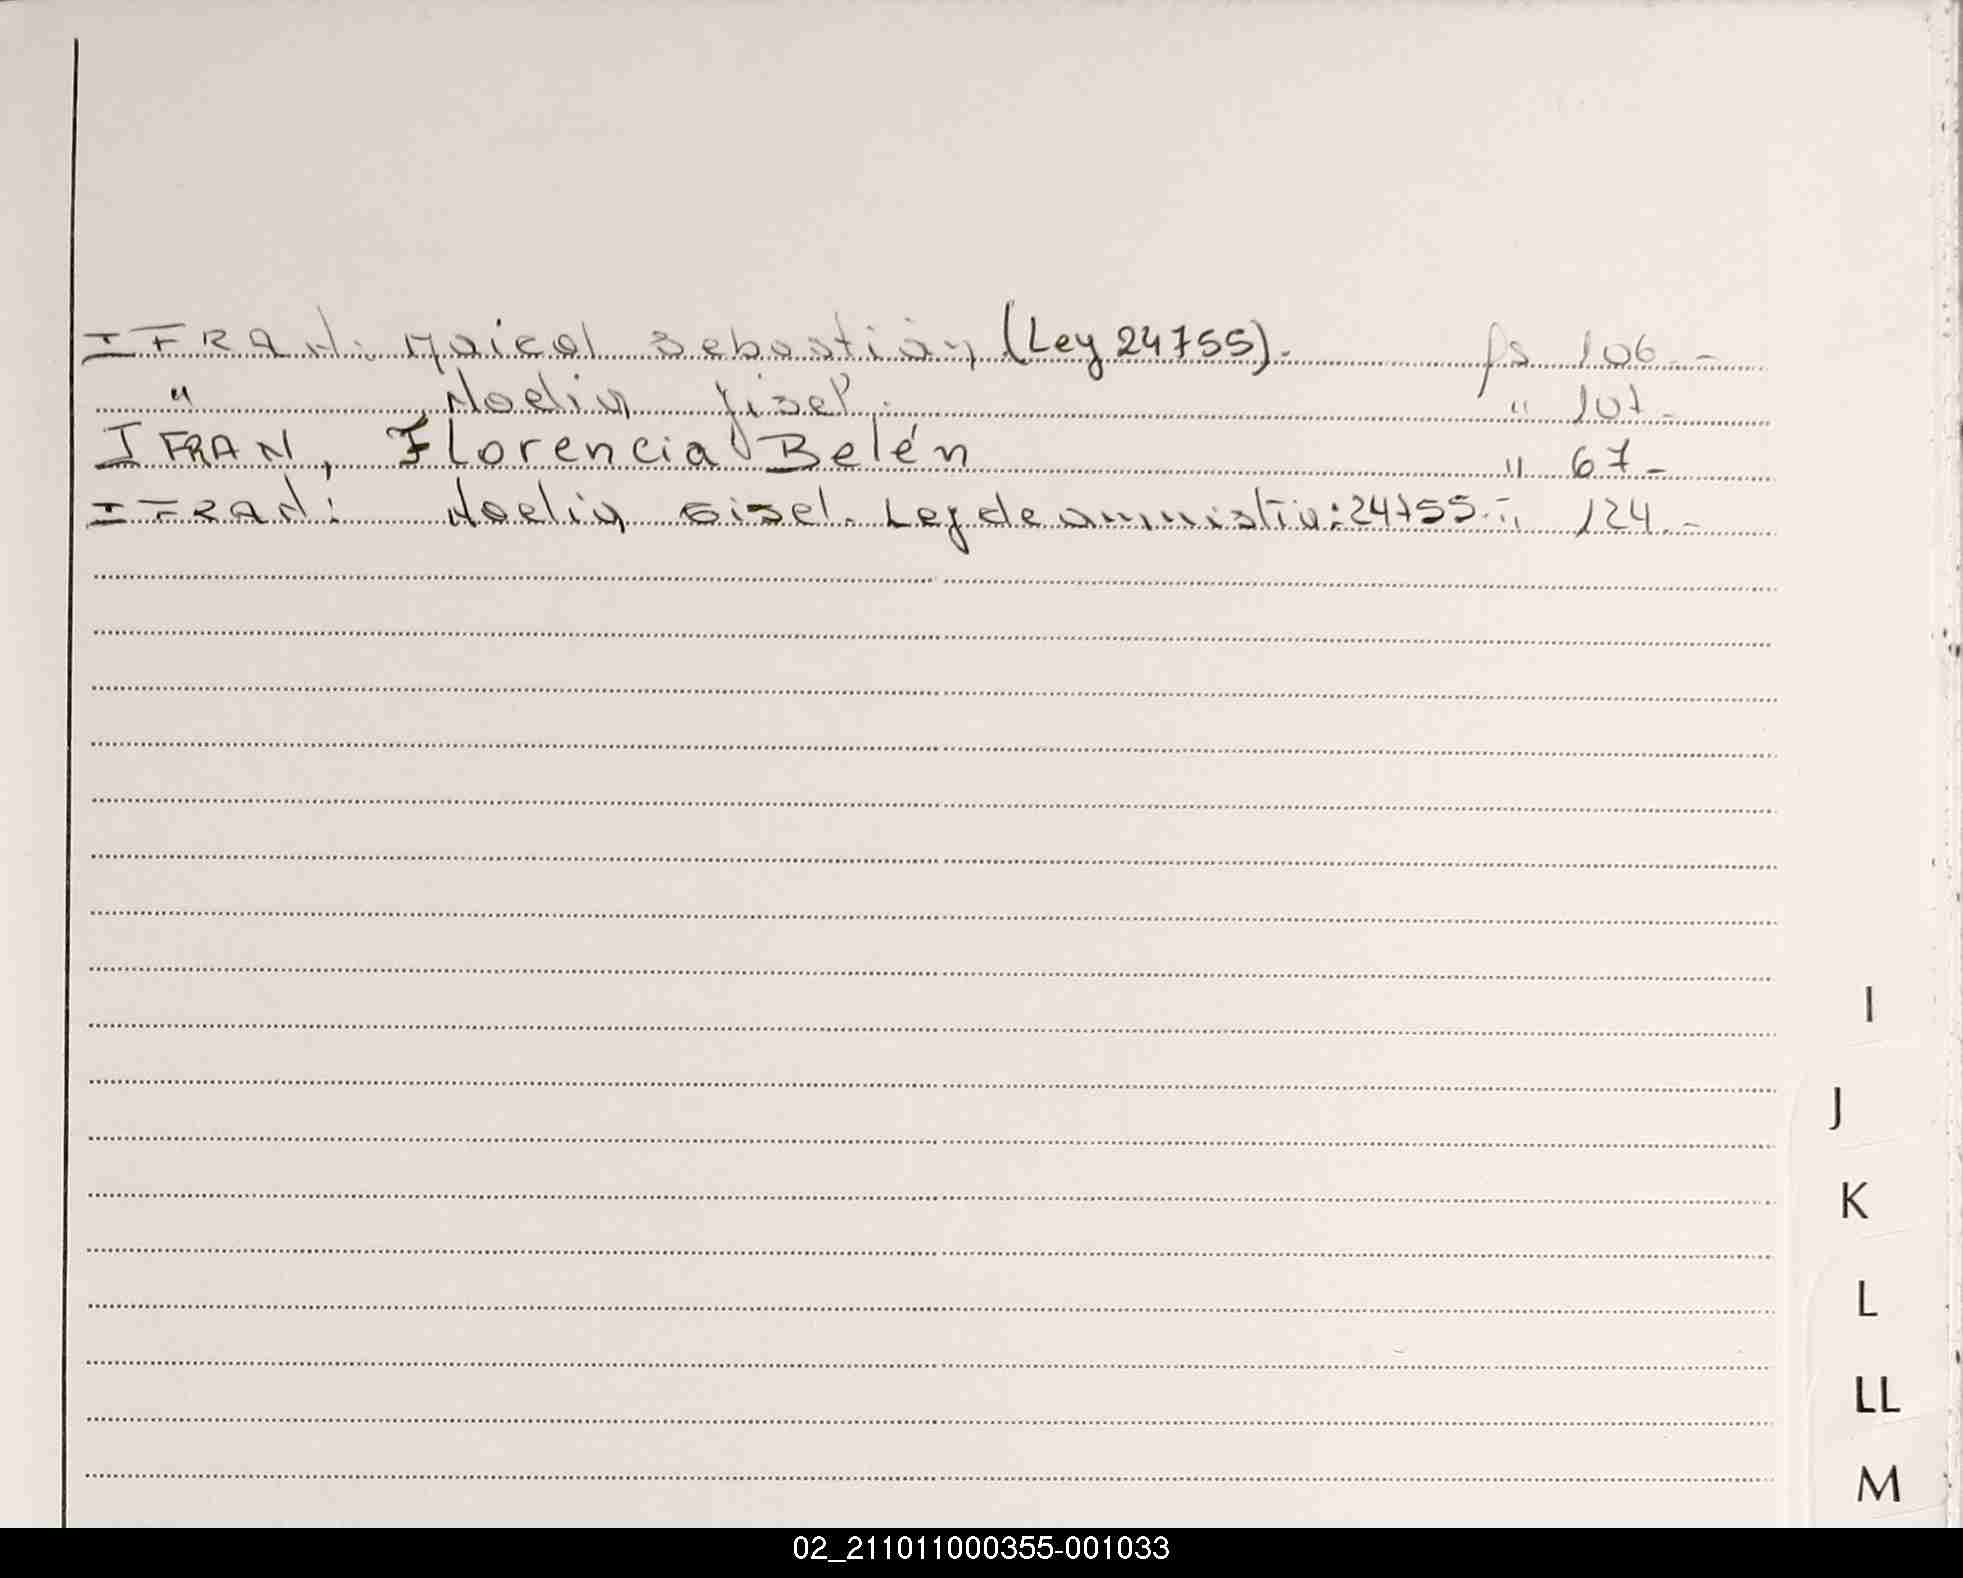 IFRAN: Maicol Sebastián (Ley 24755).- fs 106.-
" Noelia Jisel.- " 107.-
IFRAN, Florencia Belén " 67-
IFRAN: Noelia Gisel. Ley de amnistia: 24755.- " 124.-
I
J
K
L
LL
M
02_211011000355-001033